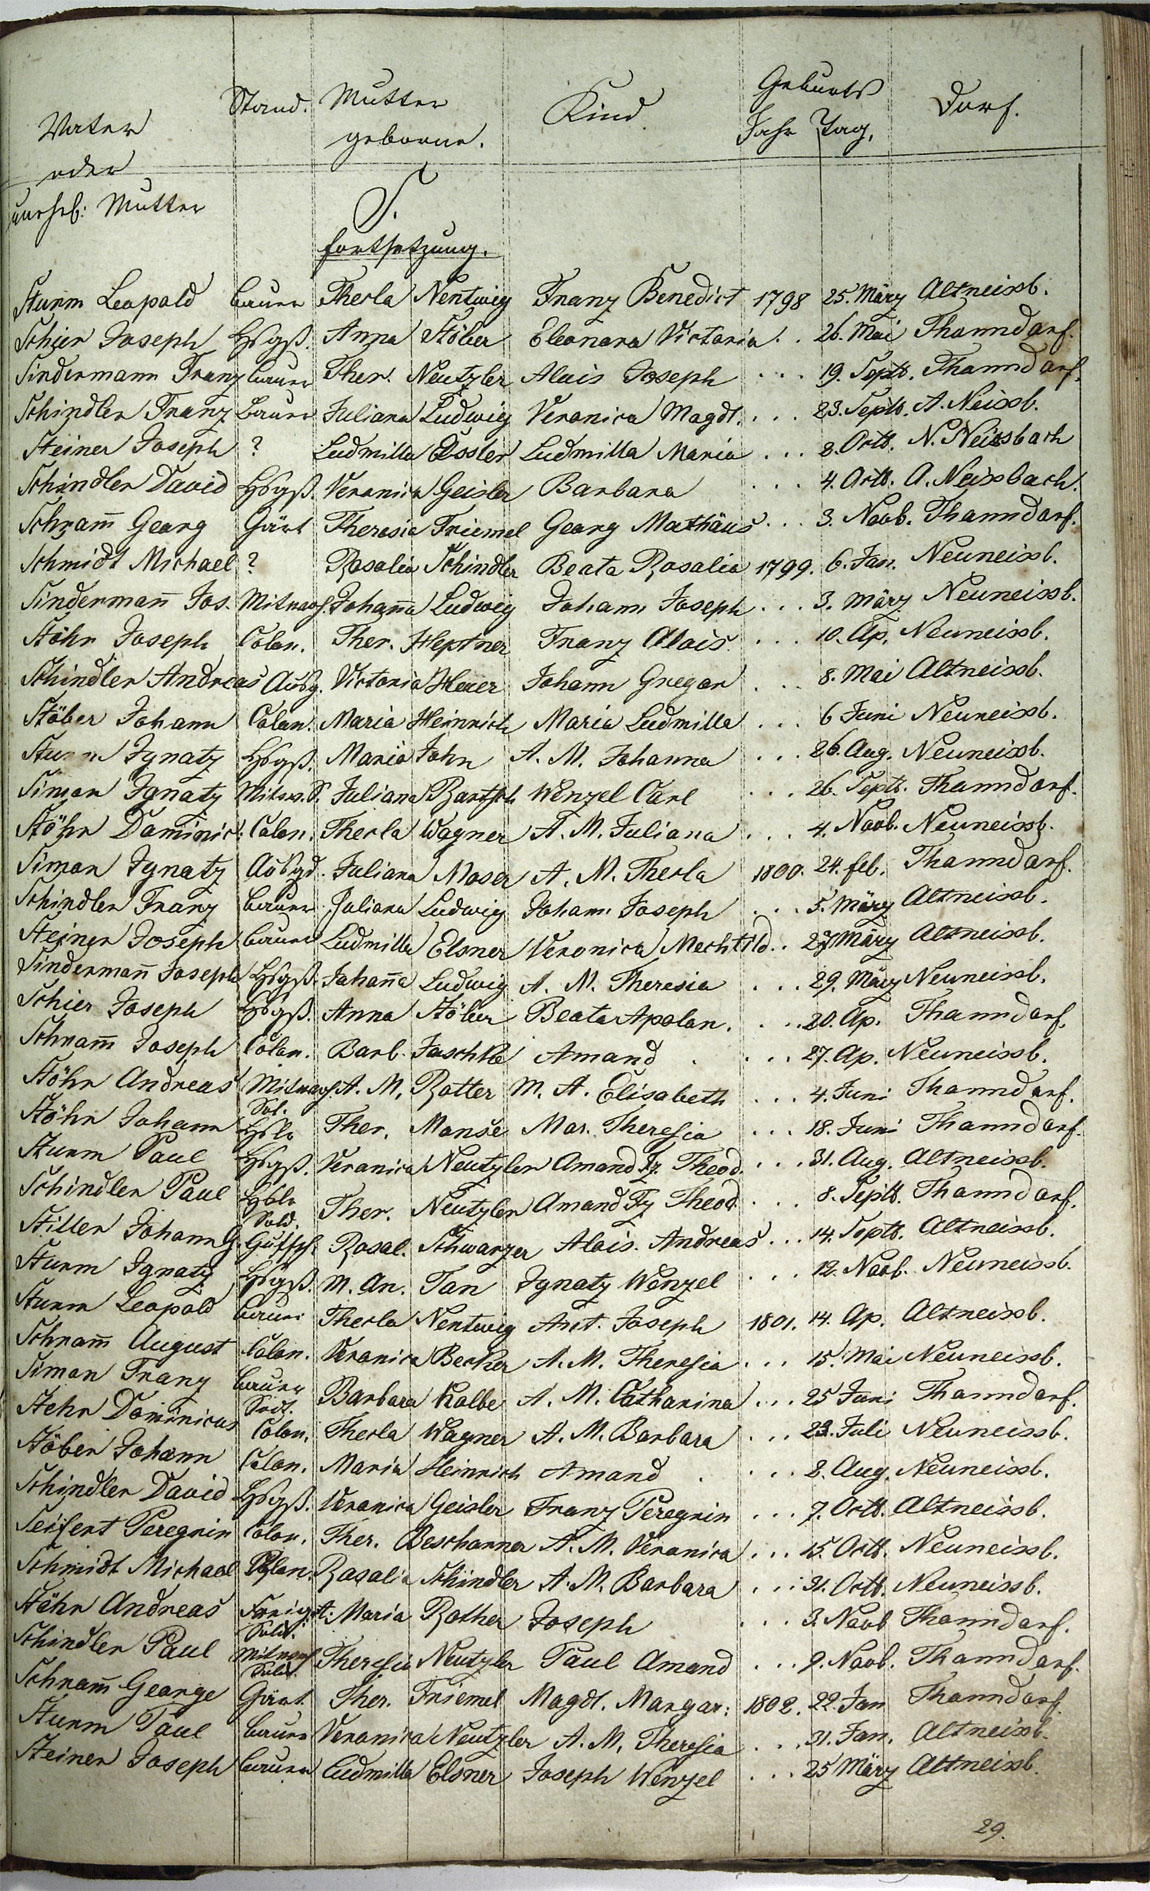 Vater oder unehl. Mutter | Stand. | Mutter geborne. | Kind | Geburts Jahr Tag. | Dorf.
S.
Fortsetzung.
Sturm Leopold Bauer Thecla Nentwig Franz Benedict 1798 25. März Altneissb.
Schier Joseph Hsgß. Anna Stöber Eleonora Victoria . . 26. Mai Thanndorf.
Sindermann Franz Bauer Ther. Neutzler Alois Joseph . . . 19. Septb. Thanndorf.
Schindler Franz Bauer Juliana Ludwig Veronica Magdl. . . . 23. Septb. A. Neissb.
Steiner Joseph ? Ludmilla Elssler Ludmilla Maria . . . 8. Octb. N. Neissbach
Schindler David Hsgß. Veronica Geisler Barbara . . . 4. Octb. A. Neissbach.
Schram̄ Georg Gärt Theresia Friemel Georg Mathäus . . . 3. Novb. Thanndorf.
Schmidt Michael ? Rosalia Schindler Beata Rosalia 1799. 6. Jan. Neuneissb.
Sinderman̄ Jos. Johan̄a Ludwig Johann Joseph . . . 3. März Neuneissb.
Stöhr Joseph Colon. Ther. Heptner Franz Alois . . . 10. Ap. Neuneissb.
Schindler Andreas Ausg. Victoria Heuer Johann Gregor . . . 8. Mai Altneissb.
Stöber Johann Colon. Maria Heinrich Maria Ludmilla . . . 6 Juni Neuneissb.
Sturm Ignatz Hsgß. Maria John A. M. Johanna . . . 26. Aug. Neuneissb.
Simon Ignatz Juliana Bartsch Wenzel Carl . . . 26. Septb. Thanndorf.
Stöhr Dominic. Colon. Thecla Wagner A. M. Juliana . . . 4. Novb. Neuneissb.
Simon Ignatz Ausgd. Juliana Moser A. M. Thecla 1800. 24. Feb. Thanndorf.
Schindler Franz Bauer Juliana Ludwig Johann Joseph . . . 5. März Altneissb.
Steiner Joseph Bauer Ludmilla Elsner Veronica Mechtild . . März Altneissb.
Sinderman̄ Joseph Hsgß. Johan̄a Ludwig A. M. Theresia . . . 29. März Neuneissb.
Schier Joseph Hsgß. Anna Stöber Beata Apolon. . . . 20. Ap. Thanndorf.
Schram̄ Joseph Colon. Barb. Jaschke Amand . . . . 27. Ap. Neuneissb.
Stöhr Andreas A. M. Rotter M. A. Elisabeth . . . 4. Juni Thanndorf.
Stöhr Johann Ther. Manse Mar. Theresia . . . 18. Juni Thanndorf.
Sturm Paul Hsgß. Veronica Neutzler Amand Fz. Theod. . . . 31. Aug. Altneissb.
Schindler Paul Sold. Ther. Neutzler Amand Fz Theod. . . . 8. Septb. Thanndorf.
Stiller Johann G. Rosal. Schwarzer Alois. Andreas . . . 14. Septb. Altneissb.
Sturm Ignatz Hsgß. M. An. Tan Ignatz Wenzel . . . 12. Novb. Neuneissb.
Sturm Leopold Bauer Thecla Nentwig Ant. Joseph 1801. 14. Ap. Altneissb.
Schram̄ August Colon. Veronica Becker A. M. Theresia . . . 15. Mai Neuneissb.
Simon Franz Bauer Barbara Kolbe A. M. Catharina . . . 25 Juni Thanndorf.
Stehr Dominicus Colon. Thecla Wagner A. M. Barbara . . . 23. Juli Neuneissb.
Stöber Johann Colon. Maria Heinrich Amand . . . . 8. Aug. Neuneissb.
Schindler David Hsgß. Veronica Geisler Franz Peregrin . . . 7. Octb. Altneissb.
Seifert Peregrin Colon. Ther. Beschorner A. M. Veronica . . . 15. Octb. Neuneissb.
Schmidt Michael Colon. Rosalia Schindler A. M. Barbara . . . 31. Octb. Neuneissb.
Stöhr Andreas A. Maria Rother Joseph . . . 3. Novb Thanndorf.
Schindler Paul Theresia Neutzler Paul Amand . . . 9. Novb. Thanndorf.
Schram̄ George Gärt. Ther. Friemel Magdl. Margar: 1802. 22. Jan Thanndorf.
Sturm Paul Bauer Veronica Neutzler A. M. Theresia . . . 31. Jan. Altneissb.
Steiner Joseph Bauer Ludmilla Elsner Joseph Wenzel . . . 25 März Altneissb.
29.